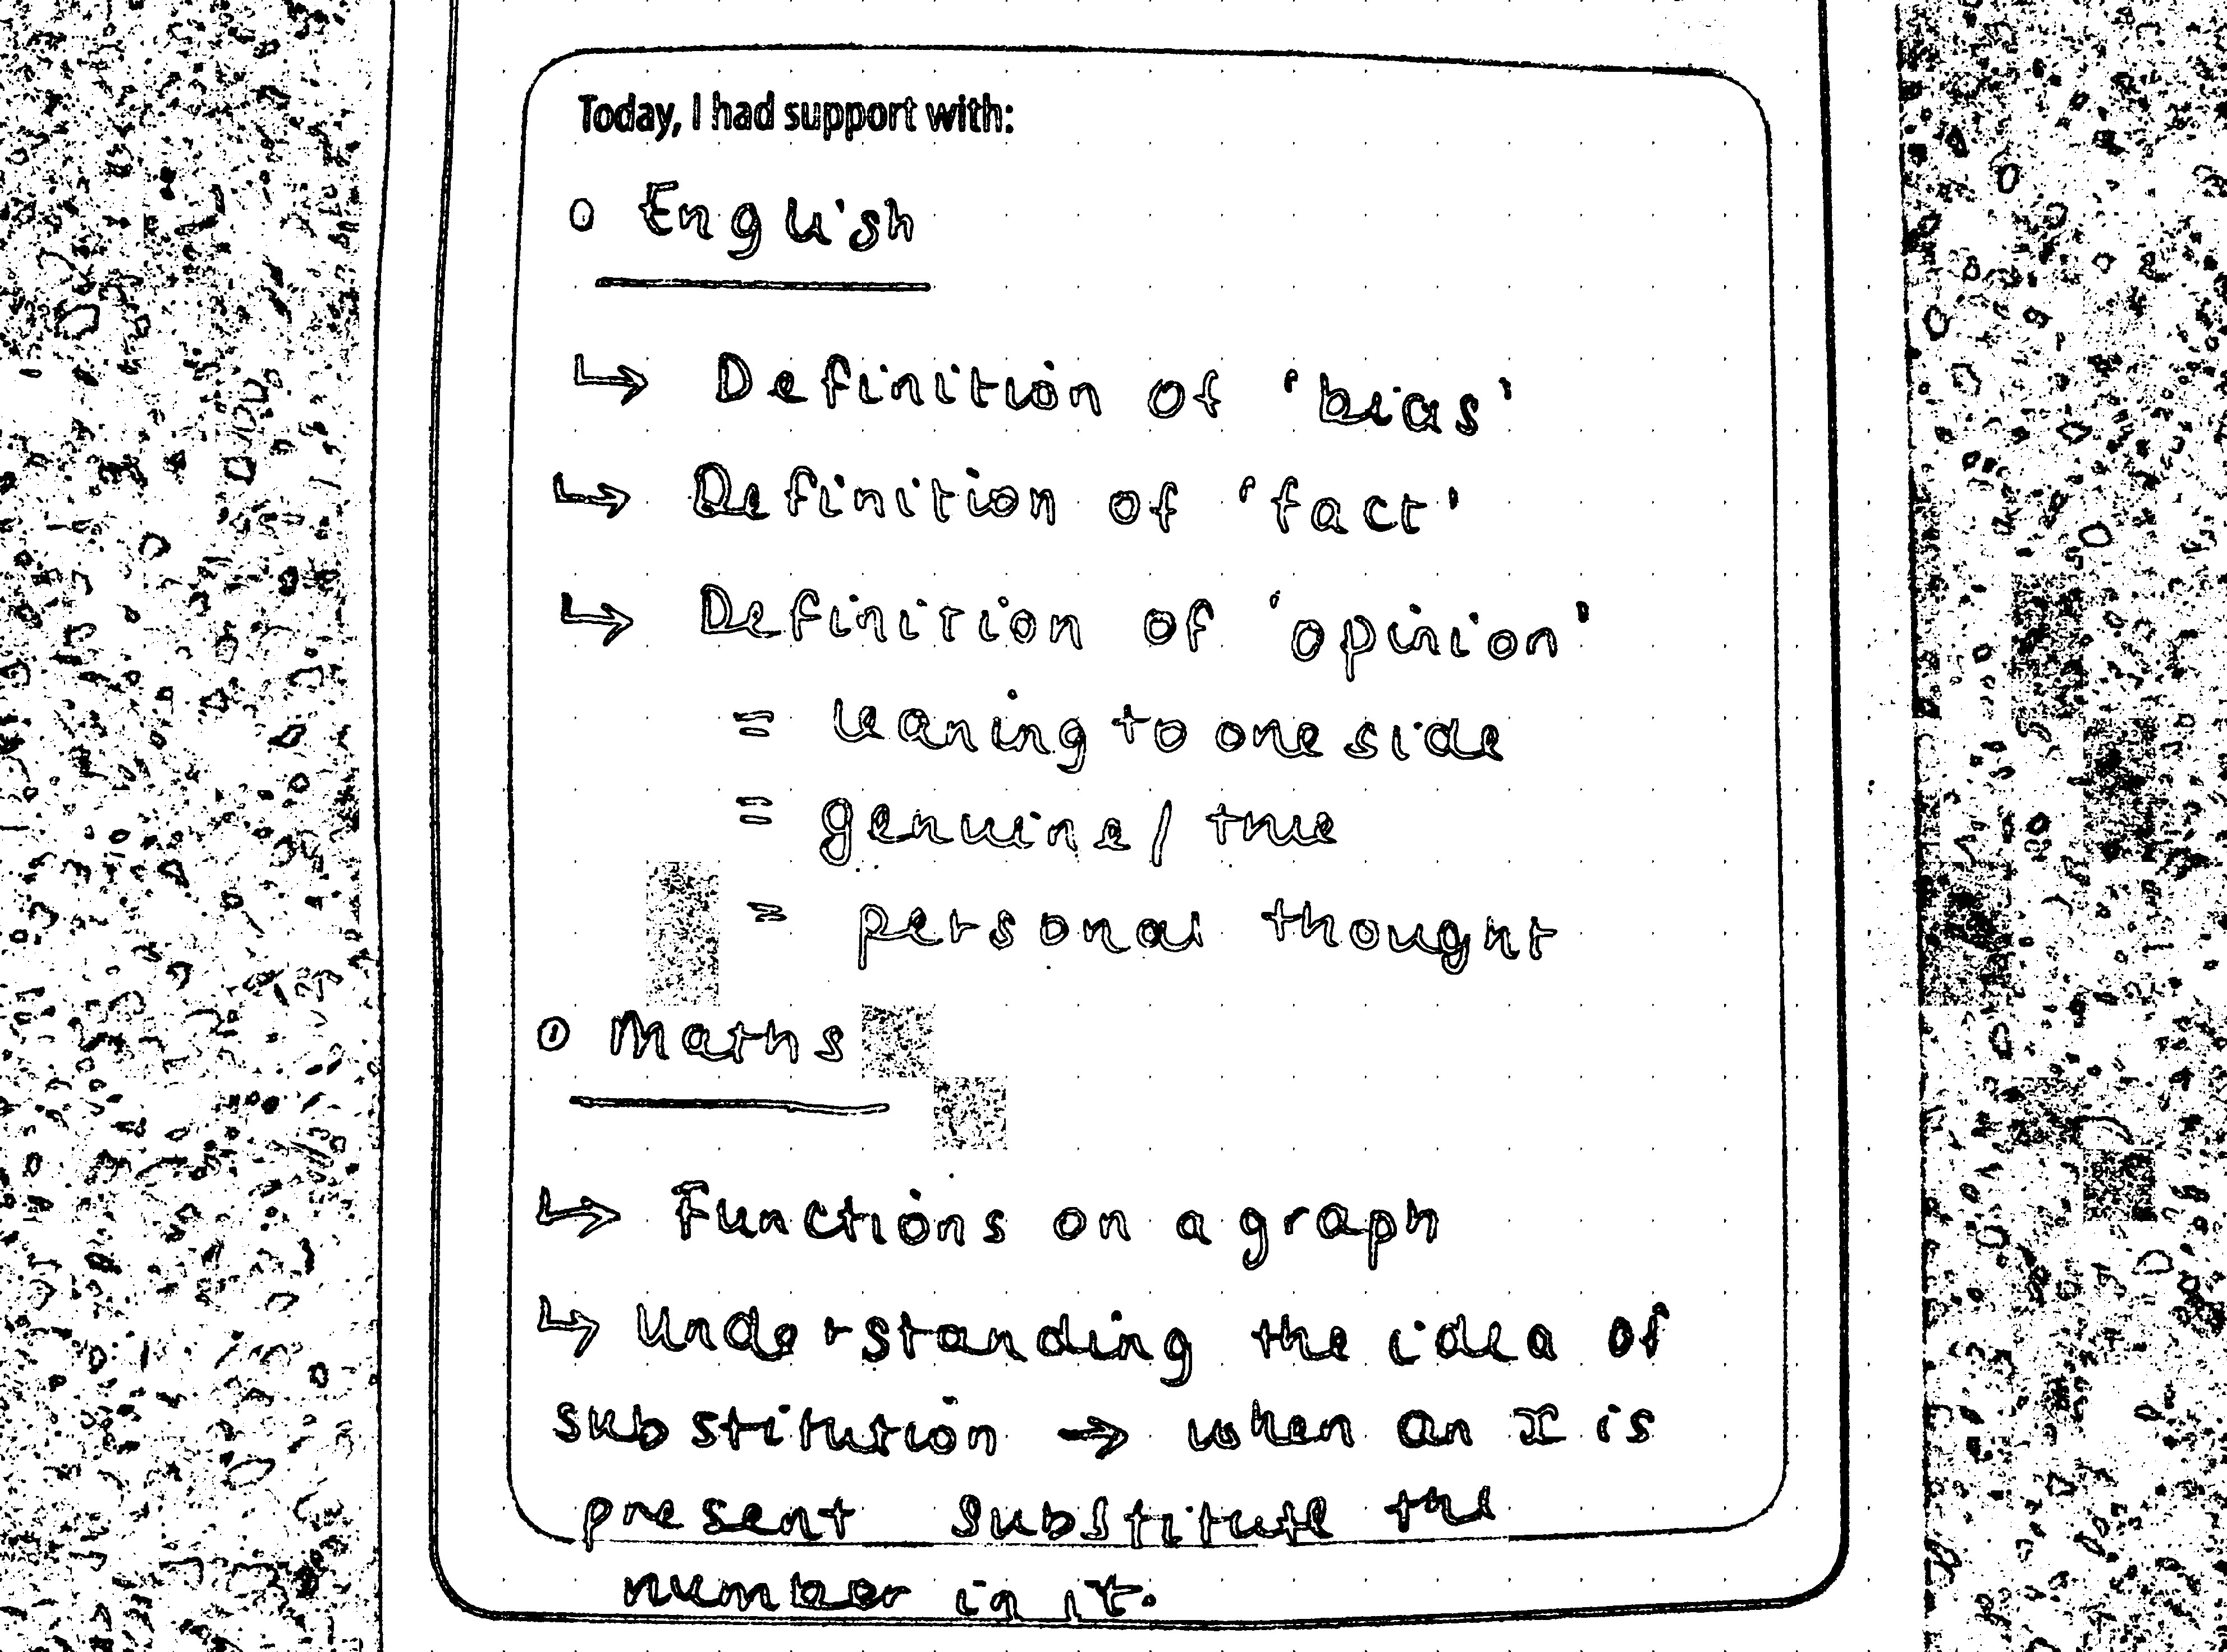 Today, I had support with:
○ English
↳ Definition of 'bias'
↳ Definition of 'fact'
↳ Definition of 'opinion'
= leaning to one side
= genuine / true
= personal thought
○ Maths
↳ Functions on a graph
↳ Understanding the idea of
substitution → when an x is
present substitute the
number in it.